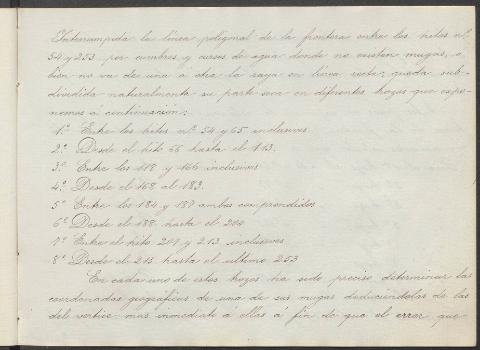 Interrumpida la línea poligonal de la frontera entre los hitos nº.
54 y 253 por cumbres y cursos de agua donde no existen mugas, o
bien no va de una á otra la raya en línea recta; queda sub-
dividida naturalmente su parte seca en diferentes trozos que expo-
nemos á continuación:
1º. Entre los hitos nº. 54 y 65 inclusives
2º. Desde el hito 66 hasta el 113.
3º. Entre los 118 y 166 inclusives
4º. Desde el 168 al 183.
5º Entre los 184 y 187 ambos comprendidos
6º Desde el 188 hasta el 204
7º Entre el hito 207 y 213 inclusives
8º Desde el 215 hasta el último 253
En cada uno de estos trozos ha sido preciso determinar las
coordenadas geográficas de una de sus mugas deduciéndolas de las
del vértice mas inmediato á ellas á fin de que el error que